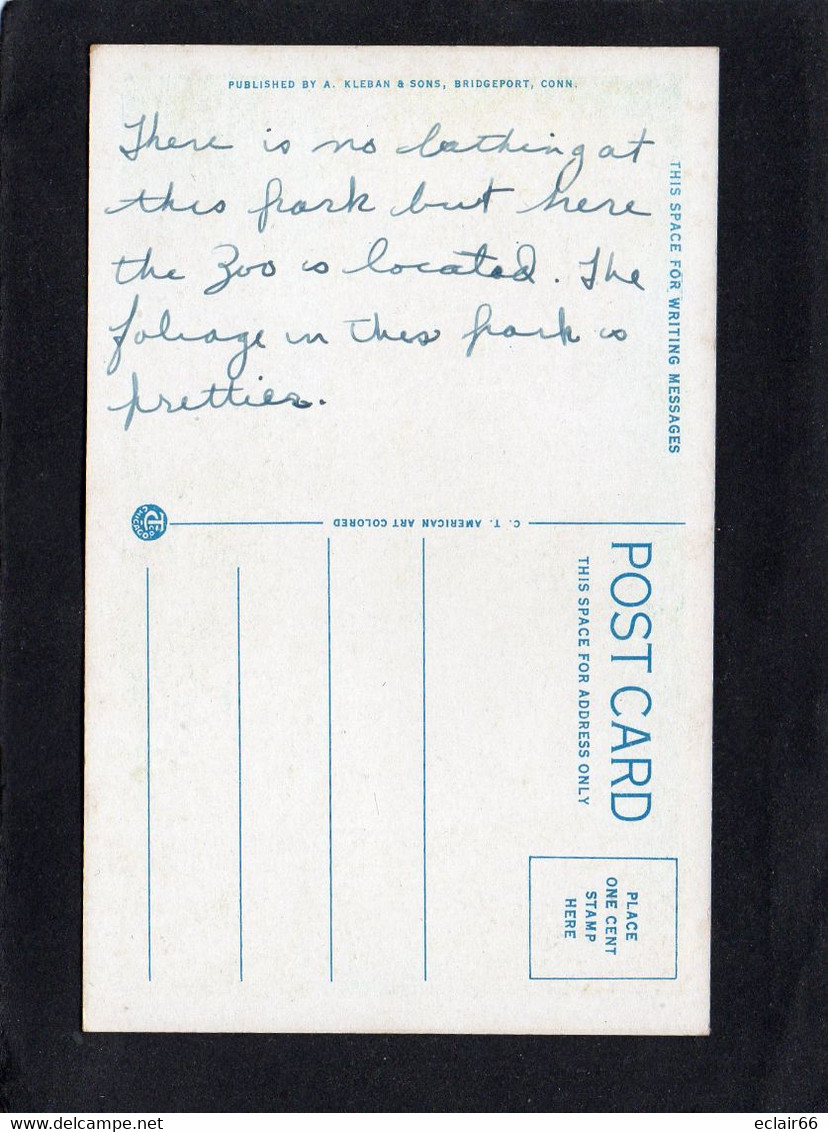 PUBLISHED BY A. KLEBAN & SONS, BRIDGEPORT, CONN.
There is no bathing at
this park but here
the Zoo is located. The
foliage in this park is
prettier.
THIS SPACE FOR WRITING MESSAGES
C. T. AMERICAN ART COLORED
CT CO. CHICAGO
POST CARD
THIS SPACE FOR ADDRESS ONLY
PLACE
ONE CENT
STAMP
HERE
delcampe.net
eclair66